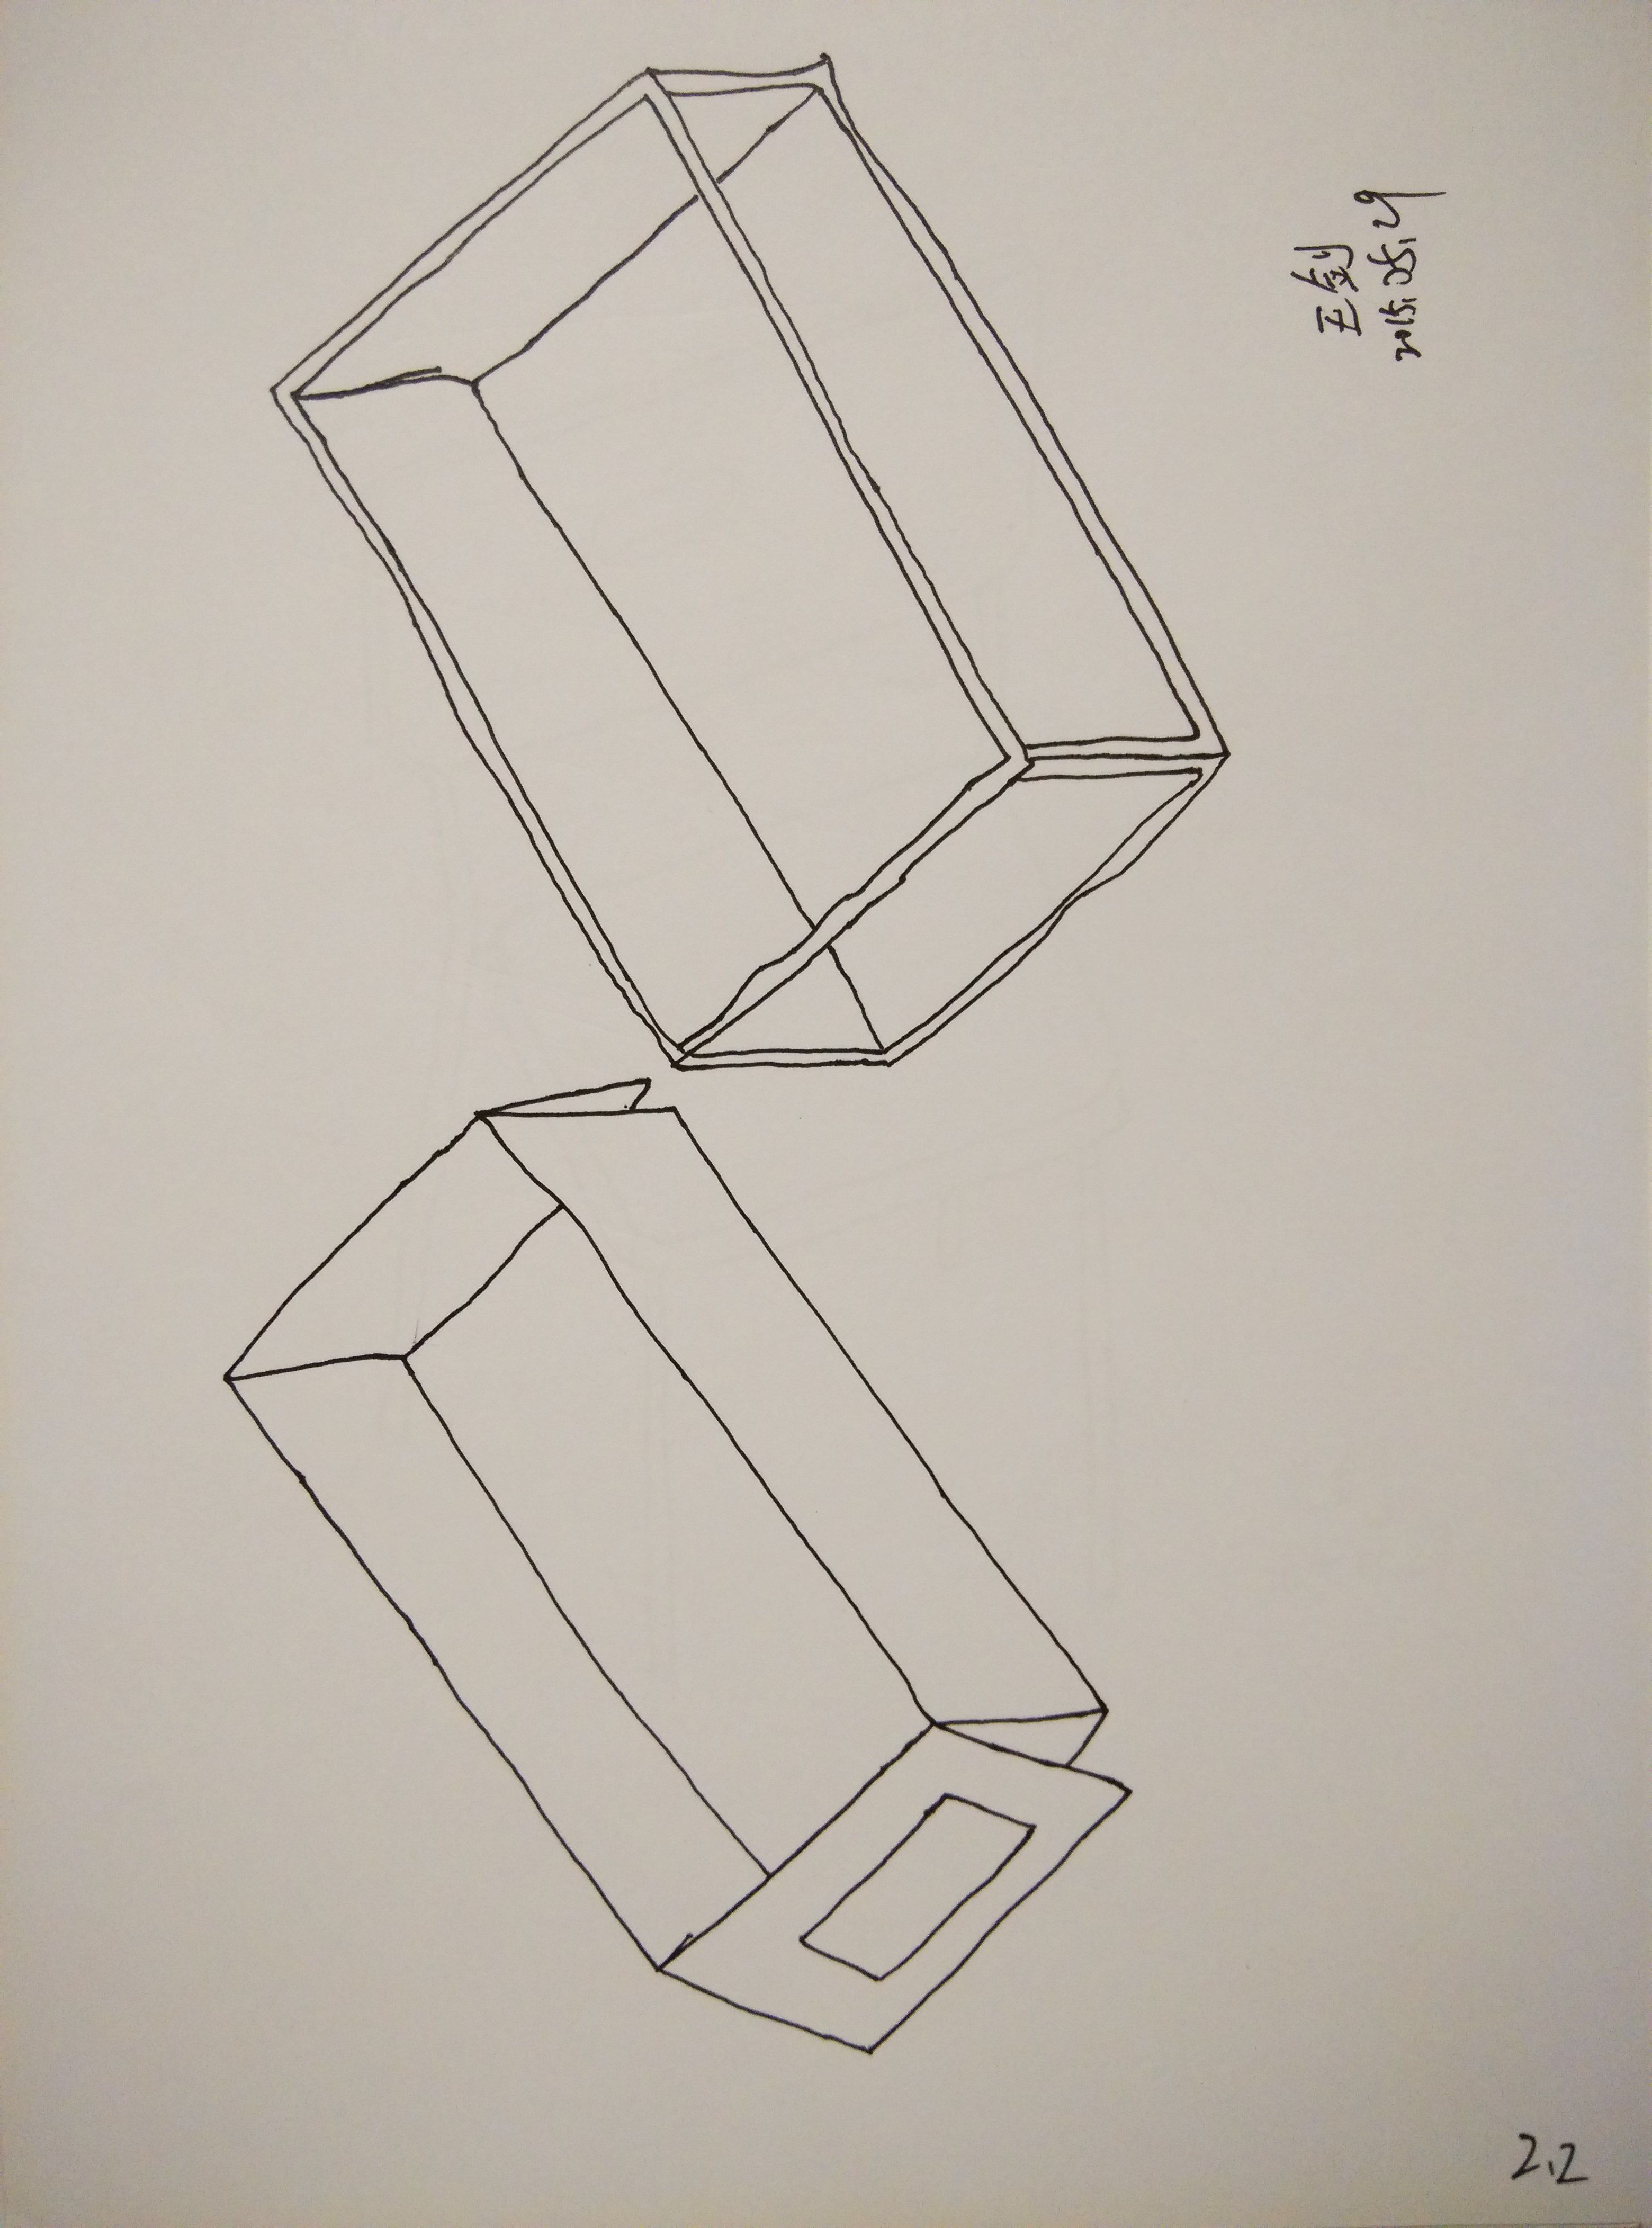 王剑
2015.05.29
2.2